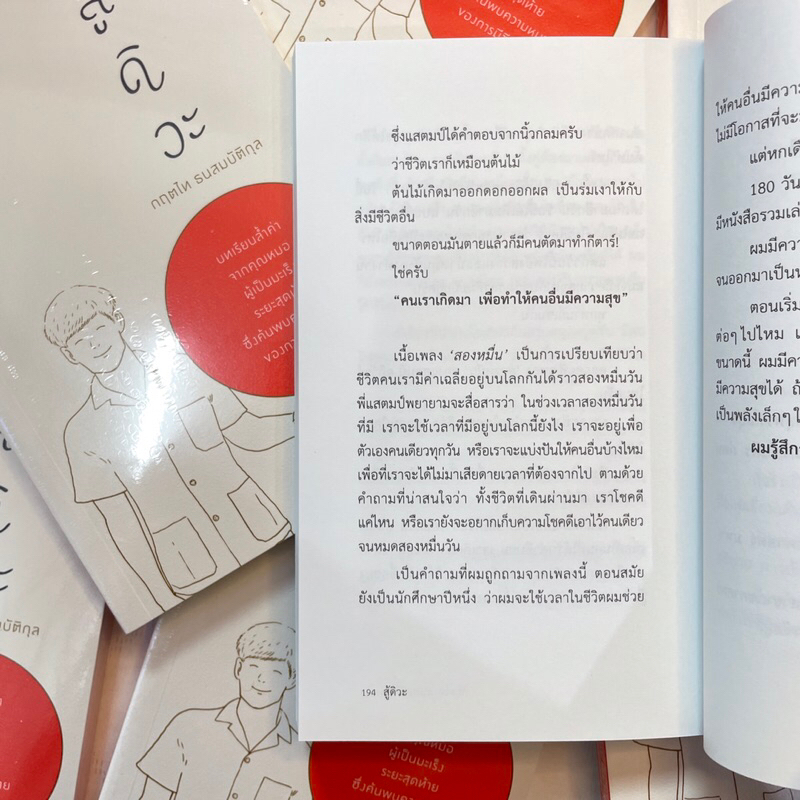 สู้
ดิ
วะ
กฤตไท ธนสมบัติกุล
บทเรียนล้ำค่า
จากคุณหมอ
ผู้เป็นมะเร็ง
ระยะสุดท้าย
ซึ่งค้นพบความ
ของการ
สุดท้าย
ซึ่งค้นพบความหมาย
ของการมี
ซึ่งแสตมป์ได้คำตอบจากนิ้วกลมครับ
ว่าชีวิตเราก็เหมือนต้นไม้
ต้นไม้เกิดมาออกดอกออกผล เป็นร่มเงาให้กับ
สิ่งมีชีวิตอื่น
ขนาดตอนมันตายแล้วก็มีคนตัดมาทำกีตาร์!
ใช่ครับ
“คนเราเกิดมา เพื่อทำให้คนอื่นมีความสุข”
เนื้อเพลง ‘สองหมื่น’ เป็นการเปรียบเทียบว่า
ชีวิตคนเรามีค่าเฉลี่ยอยู่บนโลกกันได้ราวสองหมื่นวัน
พี่แสตมป์พยายามจะสื่อสารว่า ในช่วงเวลาสองหมื่นวัน
ที่มี เราจะใช้เวลาที่มีอยู่บนโลกนี้ยังไง เราจะอยู่เพื่อ
ตัวเองคนเดียวทุกวัน หรือเราจะแบ่งปันให้คนอื่นบ้างไหม
เพื่อที่เราจะได้ไม่มาเสียดายเวลาที่ต้องจากไป ตามด้วย
คำถามที่น่าสนใจว่า ทั้งชีวิตที่เดินผ่านมา เราโชคดี
แค่ไหน หรือเรายังจะอยากเก็บความโชคดีเอาไว้คนเดียว
จนหมดสองหมื่นวัน
เป็นคำถามที่ผมถูกถามจากเพลงนี้ ตอนสมัย
ยังเป็นนักศึกษาปีหนึ่ง ว่าผมจะใช้เวลาในชีวิตผมช่วย
194 สู้ดิวะ
ให้คนอื่นมีความ
ไม่มีโอกาสที่จะ
แต่หกเดือ
180 วัน
มีหนังสือรวมเล่
ผมมีควา
จนออกมาเป็น
ตอนเริ่ม
ต่อๆ ไปไหม
ขนาดนี้ ผมมีค
มีความสุขได้ ถ้
เป็นพลังเล็กๆ ใ
ผมรู้สึก
บัติกุล
ผู้เป็นมะเร็ง
ระยะสุดท้าย
ซึ่งค้นพบ